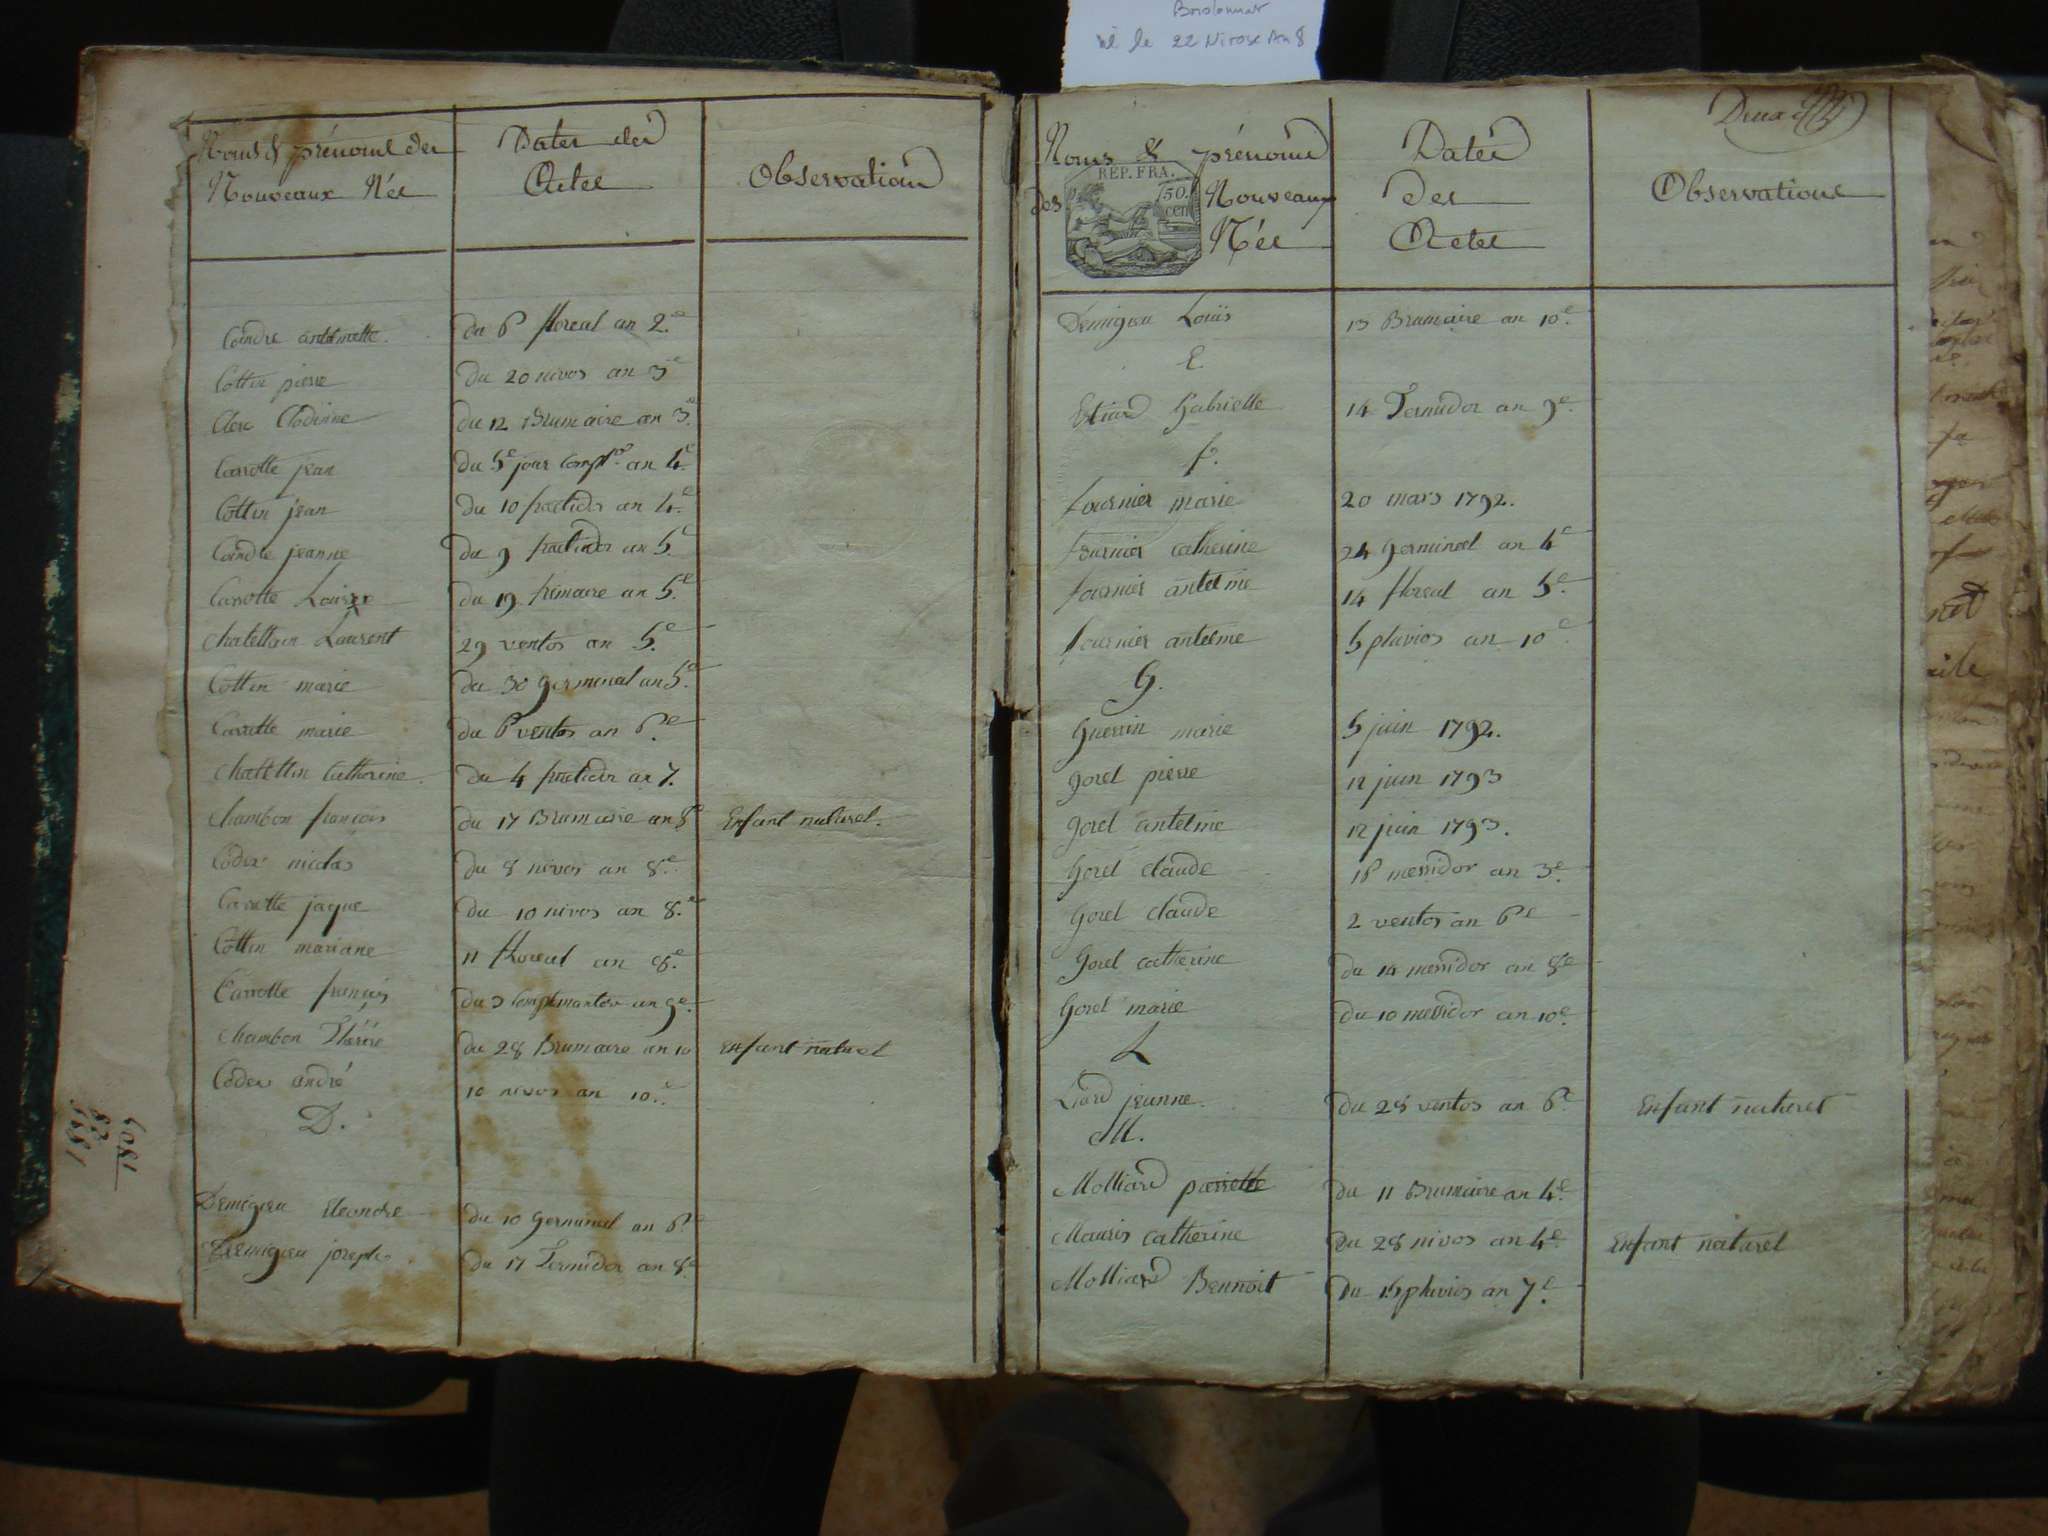 né le 22 Nivose An 8
Noms & prénoms des
Nouveaux Nés
Dates des
Actes
Observations
Coindre antoinette
du 6 floreal an 2.e
Cottin pierre
du 20 nivos an 3e
Clerc Clodinne
du 12 Brumaire an 3.e
Carrotte jean
du 5e jour complre an 4.e
Cottin jean
du 10 fructidor an 4.e
Coindre jeanne
du 9 fructidor an 5.e
Carrotte Louise
du 19 frimaire an 5.e
Chatellain Laurent
29 ventos an 5.e
Cotten marie
du 30 germinal an 5.e
Carrotte marie
du 6 ventos an 6.e
Chatellin Catherine
du 4 fructidor an 7.
Chambon francois
du 17 Brumaire an 8e
Enfant naturel.
Codex nicolas
du 8 nivos an 8.e
Carrotte jaque
du 10 nivos an 8.e
Cottin mariane
11 floreal an 8.e
Carrotte françois
du 3 complimantere an 9e
Chambon Thérése
du 28 Brumaire an 10
enfant naturel
Codex andré
10 nivos an 10.e
D.
Demigieu Leondre
du 10 Germinal an 6.e
Demigieu joseph
du 17 Termidor an 8.e
Deux
Noms & prénoms
des Nouveaux
Nés
REP. FRA.
50.
cen
Dates
des
Actes
Observations
Demigieu Louis
13 Brumaire an 10e.
E.
Estiard Gabrielle
14 Termidor an 9e.
f.
fournier marie
20 mars 1792.
fournier catherine
24 germinal an 4e
fournier antelme
14 floreal an 5.e
fournier antelme
5 pluvios an 10e
G.
Guerrin marie
5 juin 1792.
gorel pierre
12 juin 1793
gorel antelme
12 juin 1793.
Gorel claude
16 messidor an 3e.
Gorel claude
2 ventos an 6e
Gorel catherine
du 14 messidor an 8e
Gorel marie
du 10 messidor an 10e.
L
Liard jeanne.
du 28 ventos an 6.e
Enfant naturel
M.
Molliard pierrette
du 11 Brumaire an 4.e
Mauris Catherine
du 28 nivos an 4.e
enfant naturel
Molliard Bennoit
du 15 pluvios an 7.e
1809
82
1891